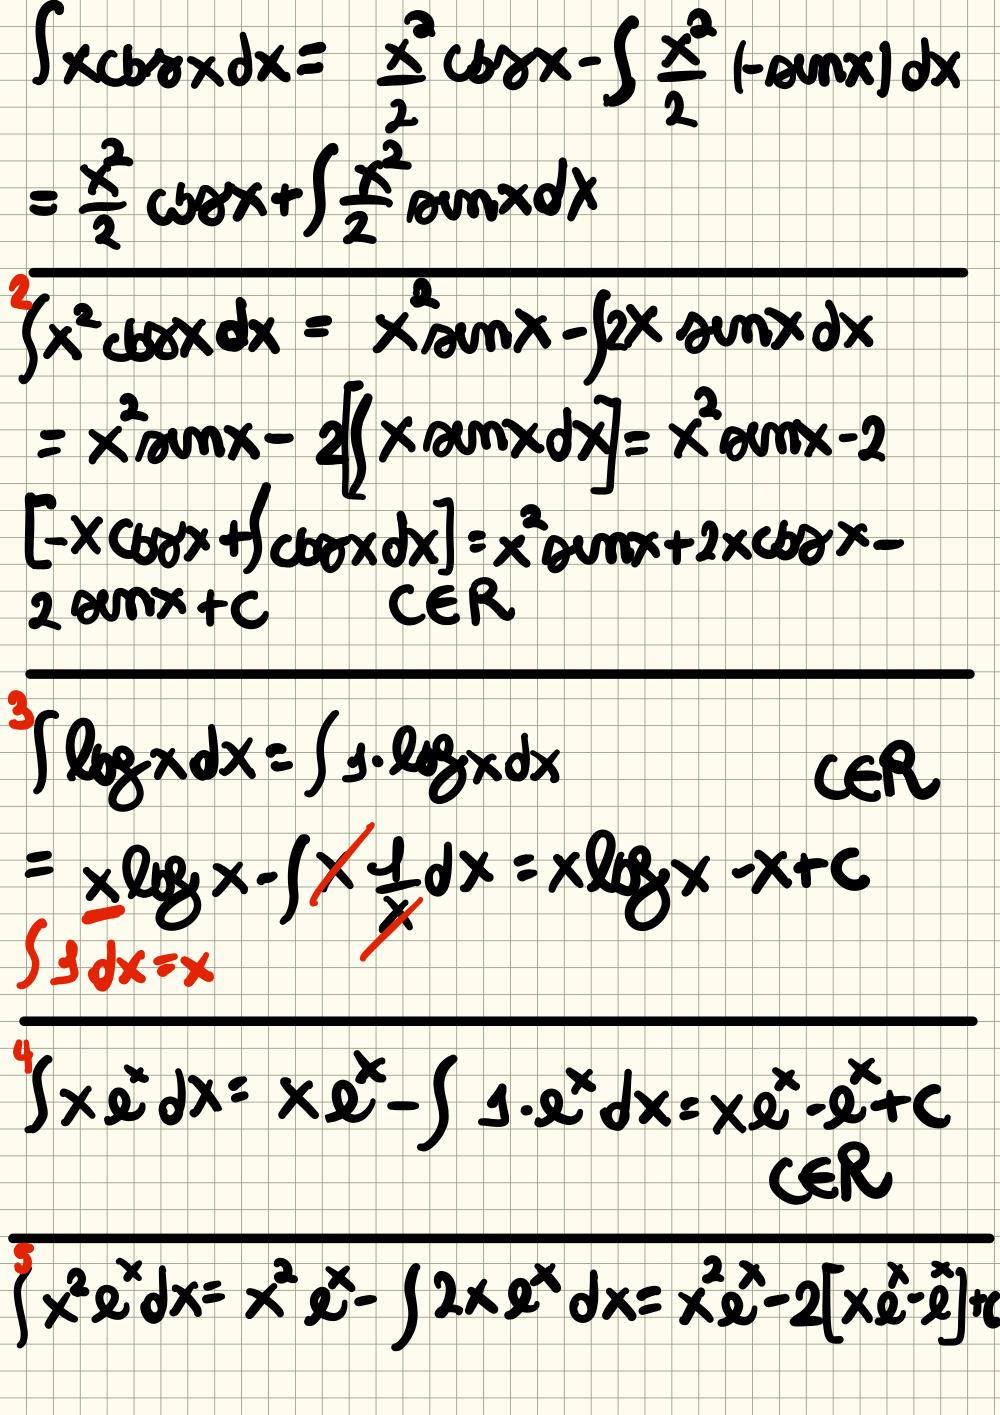 ∫ x cos x dx = x²/2 cos x - ∫ x²/2 (-sin x) dx
= x²/2 cos x + ∫ x²/2 sin x dx
2
∫ x² cos x dx = x² sin x - ∫ 2x sin x dx
= x² sin x - 2[∫ x sin x dx] = x² sin x - 2
[-x cos x + ∫ cos x dx] = x² sin x + 2x cos x -
2 sin x + c C∈R
3
∫ log x dx = ∫ 1·log x dx C∈R
= x log x - ∫ x 1/x dx = x log x - x + c
∫ 1 dx = x
4
∫ x eˣ dx = x eˣ - ∫ 1·eˣ dx = x eˣ - eˣ + c
C∈R
5
∫ x² eˣ dx = x² eˣ - ∫ 2x eˣ dx = x² eˣ - 2[x eˣ - eˣ] + c